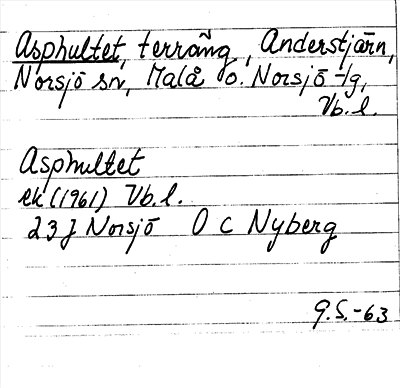 Asphultet, terräng, Anderstjärn,
Norsjö sn, Malå o. Norsjö -lg,
Vb. l.
Asphultet
ek (1961) Vb. l.
23 J Norsjö O C Nyberg
G.S.-63